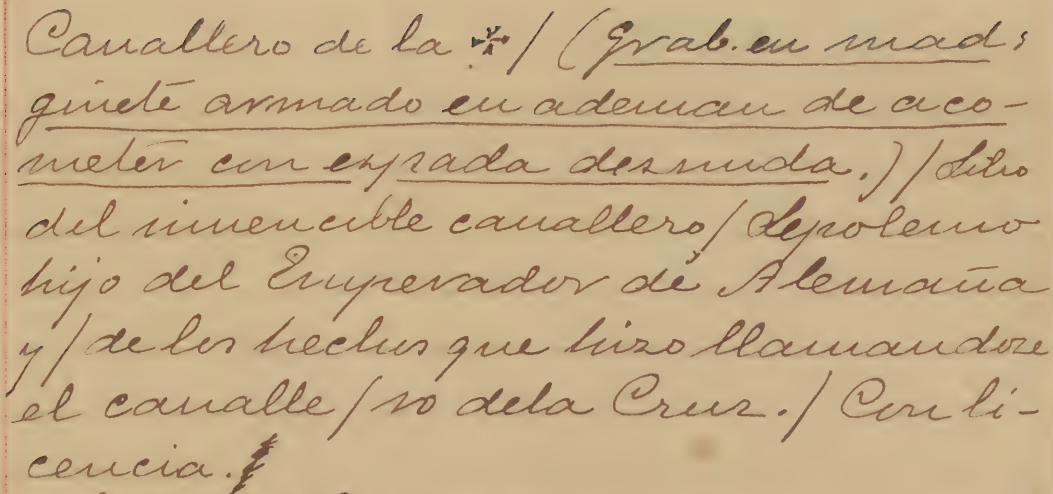 Cauallero de la ✠ / (Grab. en mad:
ginete armado en ademan de aco-
meter con espada desnuda.) / Libro
del inuencible cauallero / Lepolemo
hijo del Emperador de Alemaña
y / de los hechos que hizo llamandose
el caualle / ro dela Cruz. / Con li-
cencia.